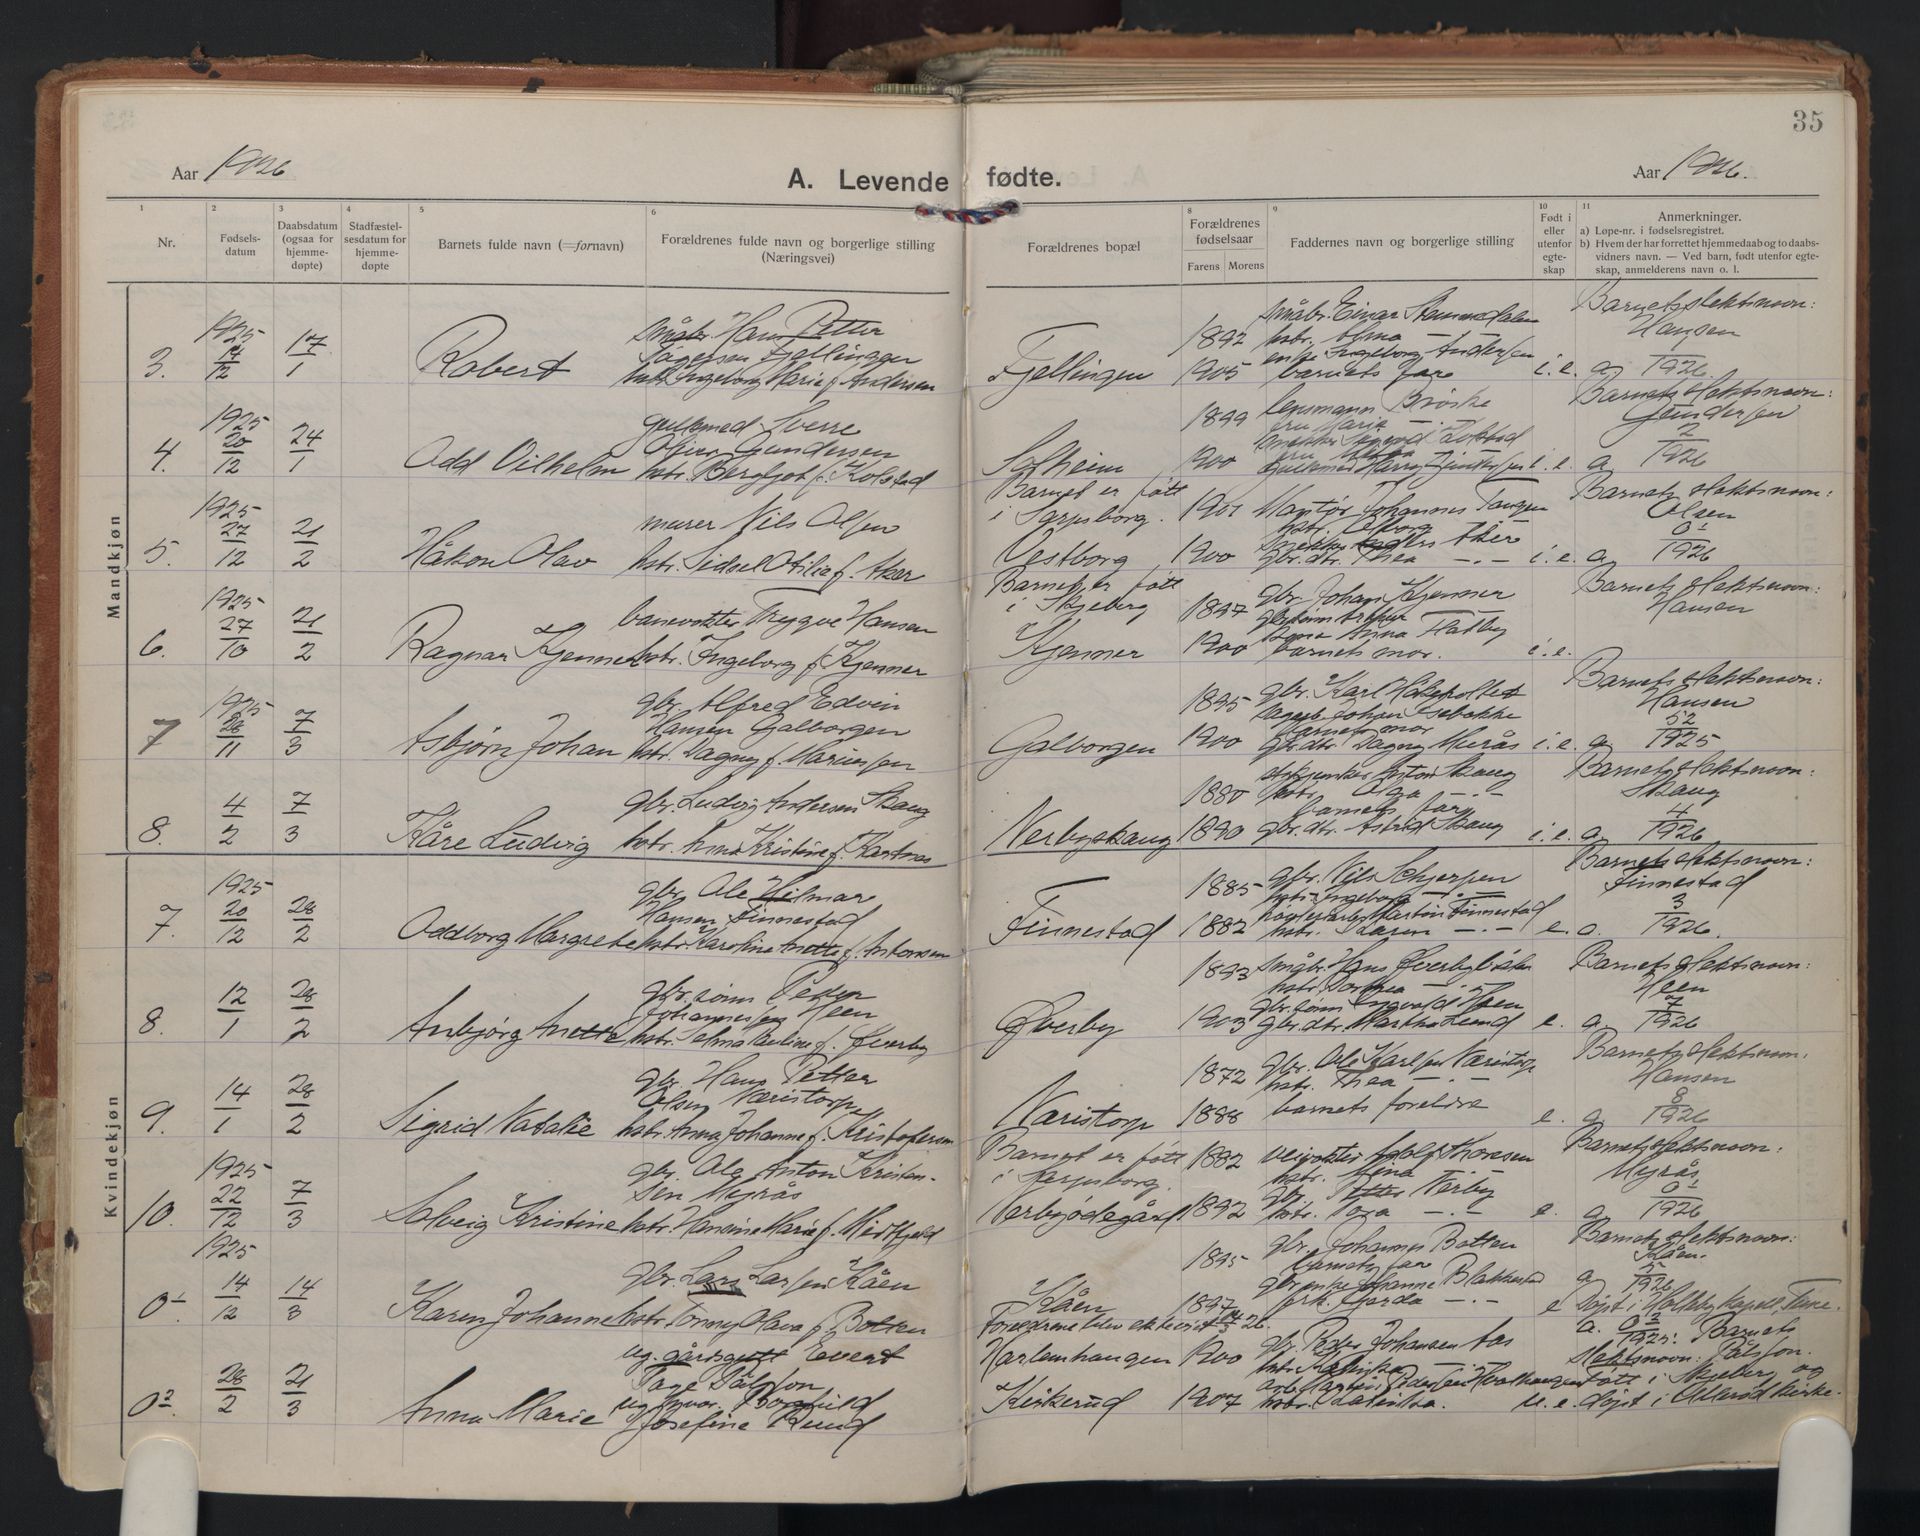 35
Aar 1926
A. Levende fødte.
Aar 1926.
1 2 3 4 5 6 8 9 10 11
Nr.
Fødsels-
datum
Daabsdatum
(ogsaa for
hjemme-
døpte)
Stadfæstel-
sesdatum for
hjemme-
døpte
Barnets fulde navn (=fornavn)
Forældrenes fulde navn og borgerlige stilling
(Næringsvei)
Forældrenes bopæl
Forældrenes
fødselsaar
Farens Morens
Faddernes navn og borgerlige stilling
Født i
eller
utenfor
egte-
skap
Anmerkninger.
a) Løpe-nr. i fødselsregistret.
b) Hvem der har forrettet hjemmedaab og to daabs-
vidners navn. — Ved barn, født utenfor egte-
skap, anmelderens navn o. l.
Mandkjøn
3.
1925
14/12
17/1
Robert
småbr. Hans Petter
hstr. Ingeborg Marie f. Andersen
Fjellingen
1892
1905
småbr. Einar
hstr. Alma —
enke Ingeborg Andersen
barnets fare
i. e.
Barnets slektsnavn:
Hansen
a 1/1926.
4.
1925
20/12
24/1
Odd Vilhelm
gullsmed Sverre
Gundersen
hstr. Bergljot f. Kolstad
Solheim
1899
1900
lensmann Brøske
fru Marie —
i. e.
Barnets slektsnavn:
Gundersen
a 2/1926
5.
1925
27/12
21/2
Håkon Olav
murer Nils Olsen
hstr. Sidsel Otilie f. Aker
Barnet er født
i Sarpsborg.
Vestborg
1901
1900
Johannes Tangen
gbr.dtr. Thea —.—
i. e.
Barnets slektsnavn:
Olsen
a 01/1926
6.
1925
27/10
21/2
Ragnar Kjenner
banevokter Trygve Hansen
hstr. Ingeborg f. Kjenner
Barnet er født
i Skjeberg
Kjenner
1897
1900
gbr. Johan Kjenner
Anna Flatby
barnets mor.
i. e.
Barnets slektsnavn:
Hansen
7
1925
28/11
7/3
Asbjørn Johan
gbr. Alfred Edvin
Hansen Galborgen
hstr. Dagny f. Mariussen
Galborgen
1895
1900
gbr. Karl
barnets mor
gbr.dtr. Dagny
i. e.
Barnets slektsnavn:
Hansen
a 52/1925
8.
4/2
7/3
Kåre Ludvig
gbr. Ludvig Andersen Skaug
hstr. Anna Kristine f.
Nerbyskaug
1880
1890
Anton Skaug
hstr. Olga —.—
barnets far
gbr.dtr. Astrid Skaug
i. e.
Barnets slektsnavn:
Skaug
a 4/1926
Kvindekjøn
7.
1925
20/12
28/2
Oddborg Margrete
gbr. Ole Hilmar
Hansen Finnestad
hstr. Karoline Anette f. Antonsen
Finnestad
1885
1882
gbr. Nils Schjerpen
hstr. Ingeborg —
Martin Finnestad
hstr. Karen —.—
e.
Barnets slektsnavn:
Finnestad
a. 3/1926.
8.
12/1
28/2
Anbjørg Anette
gbr.sønn Petter
Johannessen Heen
hstr. Selma Pauline f. Øverby
Øverby
1893
1903
småbr. Hans
hstr. Dorthea —
gbr.sønn Ingvald Heen
gbr.dtr. Martha Lund
e.
Barnets slektsnavn:
Heen
a 7/1926
9.
14/1
28/2
Sigrid Natalie
gbr. Hans Petter
Olsen Næristorp
hstr. Anna Johanne f. Kristofersen
Næristorp
1872
1888
gbr. Ole Karlsen Næristorp
hstr. Thea —.—
barnets foreldre
e.
Barnets slektsnavn:
Hansen
a 8/1926
10.
1925
22/12
7/3
Solveig Kristine
gbr. Ole Anton Kristian-
sen Myrås
hstr. Hansine Marie f. Midtfjeld
Barnet er født
i Sarpsborg.
Nerbyødegård
1882
1892
veivokter Adolf Thoresen
hstr. Mina —
gbr. Petter Nerby
hstr. Tora —.—
e.
Barnets slektsnavn:
Myrås
a 01/1926
01
1925
14/12
14/3
Karen Johanne
gbr. Lars Larsen Kåen
hstr. Tommy Olava f. Botten
Kåen
1895
1897
gbr. Johannes Botten
barnets far
gbr.enke Johanne Blakkestad
frk. Gerda —.—
e
Barnets slektsnavn:
Kåen.
a 5/1926
Døpt i Holkby kapell, Tune.
02
28/2
21/3
Anna Marie
ug. gårdsgutt Evert
Tage Pålsson
Borghild
Josefine Ruud
Foreldrene blev ektevidd 26.
Harlemhaugen
Kirkerud
1900
1907
gbr. Peder Johansen
hstr.
u. e.
a. 03/1925: Barnets
slektsnavn: Pålsson.
Født i Skjeberg og
døpt i Ullerøi kirke.